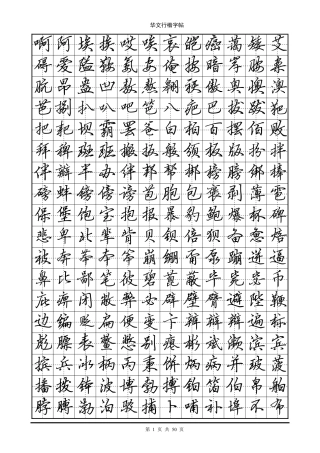 华文行楷字帖
啊阿埃挨哎唉哀皑癌蔼矮艾
碍爱隘鞍氨安俺按暗岸胺案
肮昂盎凹敖熬翱袄傲奥懊澳
芭捌扒叭吧笆八疤巴拔跋靶
把耙坝霸罢爸白柏百摆佰败
拜稗斑班搬扳般颁板版扮拌
伴瓣半办绊邦帮梆榜膀绑棒
磅蚌镑傍谤苞胞包褒剥薄雹
保堡饱宝抱报暴豹鲍爆杯碑
悲卑北辈背贝钡倍狈备惫焙
被奔苯本笨崩绷甭泵蹦迸逼
鼻比鄙笔彼碧蓖蔽毕毙毖币
庇痹闭敝弊必辟壁臂避陛鞭
边编贬扁便变卞辨辩辫遍标
彪膘表鳖憋别瘪彬斌濒滨宾
摈兵冰柄丙秉饼炳病并玻菠
播拨钵波博勃搏铂箔伯帛舶
脖膊渤泊驳捕卜哺补埠不布
第 1 页 共 30 页